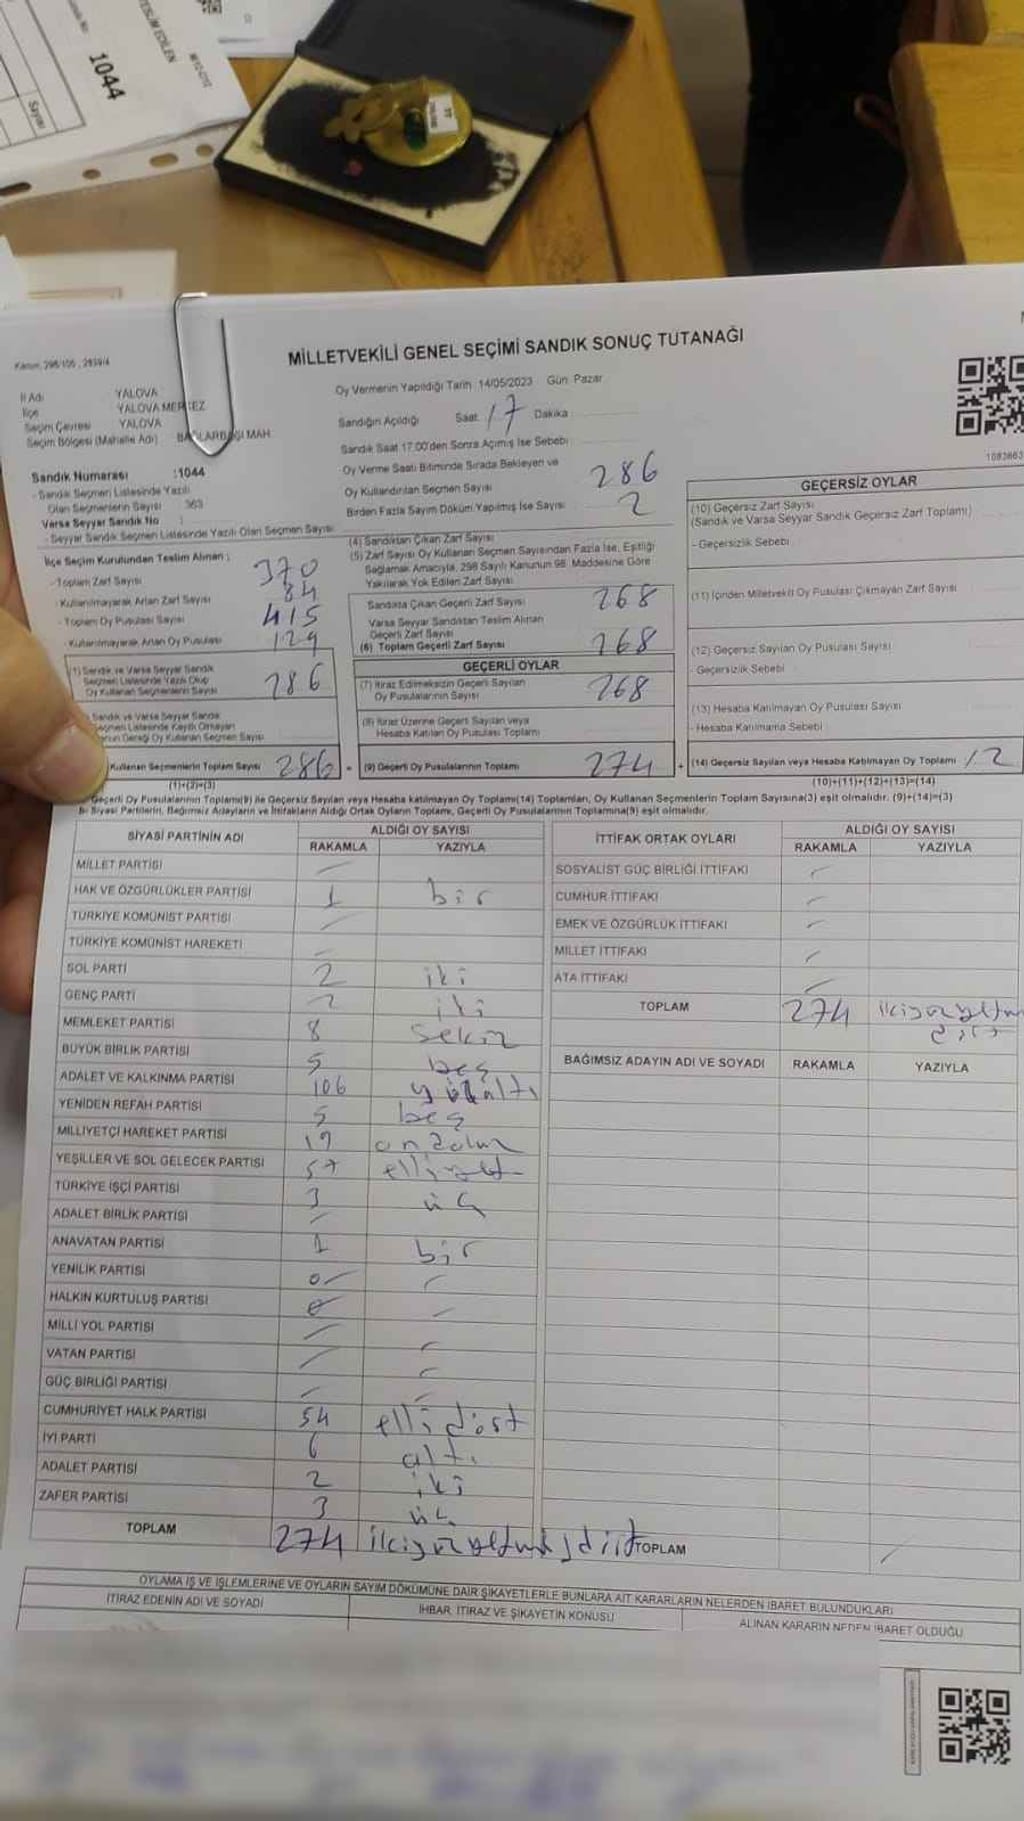 1044
Sayısı
MİLLETVEKİLİ GENEL SEÇİMİ SANDIK SONUÇ TUTANAĞI
İl Adı YALOVA
İlçe YALOVA MERKEZ
Seçim Çevresi YALOVA
Seçim Bölgesi (Mahalle Adı) BAĞLARBAŞI MAH.
Sandık Numarası :1044
- Sandık Seçmen Listesinde Yazılı
Olan Seçmenlerin Sayısı 363
Varsa Seyyar Sandık No :
- Seyyar Sandık Seçmen Listesinde Yazılı Olan Seçmen Sayısı
Oy Vermenin Yapıldığı Tarih :14/05/2023 Gün: Pazar
Sandığın Açıldığı Saat: 17 Dakika :
Sandık Saat 17:00'den Sonra Açılmış İse Sebebi :
Oy Verme Saati Bitiminde Sırada Bekleyen ve
Oy Kullandırılan Seçmen Sayısı 286
Birden Fazla Sayım Döküm Yapılmış İse Sayısı 2
İlçe Seçim Kurulundan Teslim Alınan :
- Toplam Zarf Sayısı 370
- Kullanılmayarak Artan Zarf Sayısı 84
- Toplam Oy Pusulası Sayısı 415
- Kullanılmayarak Artan Oy Pusulası 129
(1) Sandık ve Varsa Seyyar Sandık
Seçmen Listesinde Yazılı Olup
Oy Kullanan Seçmenlerin Sayısı 286
Sandık ve Varsa Seyyar Sandık
Seçmen Listesinde Kayıtlı Olmayan
Kanun Gereği Oy Kullanan Seçmen Sayısı
Kullanan Seçmenlerin Toplam Sayısı 286
(1)+(2)=(3)
(4) Sandıktan Çıkan Zarf Sayısı
(5) Zarf Sayısı Oy Kullanan Seçmen Sayısından Fazla İse, Eşitliği
Sağlamak Amacıyla, 298 Sayılı Kanunun 98. Maddesine Göre
Yakılarak Yok Edilen Zarf Sayısı
Sandıkta Çıkan Geçerli Zarf Sayısı 268
Varsa Seyyar Sandıktan Teslim Alınan
Geçerli Zarf Sayısı
(6) Toplam Geçerli Zarf Sayısı 268
GEÇERLİ OYLAR
(7) İtiraz Edilmeksizin Geçerli Sayılan
Oy Pusulalarının Sayısı 268
(8) İtiraz Üzerine Geçerli Sayılan veya
Hesaba Katılan Oy Pusulası Toplamı
= (9) Geçerli Oy Pusulalarının Toplamı 274
GEÇERSİZ OYLAR
(10) Geçersiz Zarf Sayısı
(Sandık ve Varsa Seyyar Sandık Geçersiz Zarf Toplamı)
- Geçersizlik Sebebi
(11) İçinden Milletvekili Oy Pusulası Çıkmayan Zarf Sayısı
(12) Geçersiz Sayılan Oy Pusulası Sayısı
- Geçersizlik Sebebi
(13) Hesaba Katılmayan Oy Pusulası Sayısı
- Hesaba Katılmama Sebebi
+ (14) Geçersiz Sayılan veya Hesaba Katılmayan Oy Toplamı 12
(10)+(11)+(12)+(13)=(14)
Geçerli Oy Pusulalarının Toplamı(9) ile Geçersiz Sayılan veya Hesaba katılmayan Oy Toplamı(14) Toplamları, Oy Kullanan Seçmenlerin Toplam Sayısına(3) eşit olmalıdır. (9)+(14)=(3)
b- Siyasi Partilerin, Bağımsız Adayların ve İttifakların Aldığı Ortak Oyların Toplamı, Geçerli Oy Pusulalarının Toplamına(9) eşit olmalıdır.
SİYASİ PARTİNİN ADI ALDIĞI OY SAYISI
RAKAMLA YAZIYLA
MİLLET PARTİSİ
HAK VE ÖZGÜRLÜKLER PARTİSİ 1 bir
TÜRKİYE KOMÜNİST PARTİSİ
TÜRKİYE KOMÜNİST HAREKETİ
SOL PARTİ 2 iki
GENÇ PARTİ 2 iki
MEMLEKET PARTİSİ 8 sekiz
BÜYÜK BİRLİK PARTİSİ 5 beş
ADALET VE KALKINMA PARTİSİ 106 yüzaltı
YENİDEN REFAH PARTİSİ 5 beş
MİLLİYETÇİ HAREKET PARTİSİ 19 ondokuz
YEŞİLLER VE SOL GELECEK PARTİSİ 57 elliyedi
TÜRKİYE İŞÇİ PARTİSİ 3 üç
ADALET BİRLİK PARTİSİ
ANAVATAN PARTİSİ 1 bir
YENİLİK PARTİSİ 0
HALKIN KURTULUŞ PARTİSİ
MİLLİ YOL PARTİSİ
VATAN PARTİSİ
GÜÇ BİRLİĞİ PARTİSİ
CUMHURİYET HALK PARTİSİ 54 elli dört
İYİ PARTİ 6 altı
ADALET PARTİSİ 2 iki
ZAFER PARTİSİ 3 üç
TOPLAM 274 ikiyüzyetmişdört
İTTİFAK ORTAK OYLARI ALDIĞI OY SAYISI
RAKAMLA YAZIYLA
SOSYALİST GÜÇ BİRLİĞİ İTTİFAKI
CUMHUR İTTİFAKI
EMEK VE ÖZGÜRLÜK İTTİFAKI
MİLLET İTTİFAKI
ATA İTTİFAKI
TOPLAM 274
BAĞIMSIZ ADAYIN ADI VE SOYADI RAKAMLA YAZIYLA
TOPLAM
OYLAMA İŞ VE İŞLEMLERİNE VE OYLARIN SAYIM DÖKÜMÜNE DAİR ŞİKAYETLERLE BUNLARA AİT KARARLARIN NELERDEN İBARET BULUNDUKLARI
İTİRAZ EDENİN ADI VE SOYADI İHBAR, İTİRAZ VE ŞİKAYETİN KONUSU ALINAN KARARIN NEDEN İBARET OLDUĞU